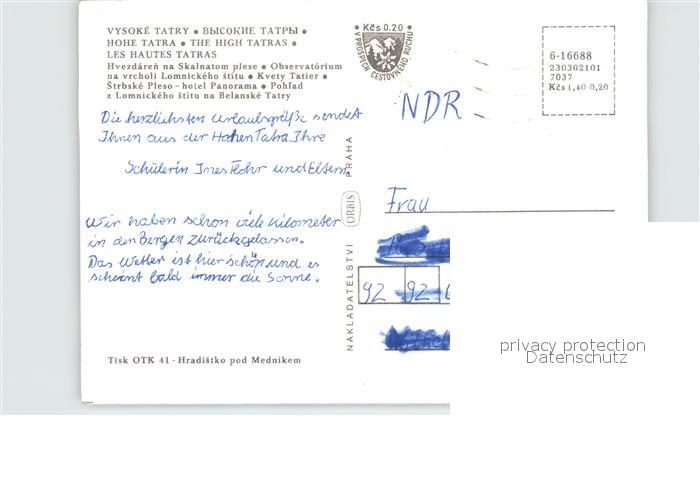 VYSOKÉ TATRY • ВЫСОКИЕ ТАТРЫ •
HOHE TATRA • THE HIGH TATRAS •
LES HAUTES TATRAS
Hvezdáreň na Skalnatom plese • Observatórium
na vrcholi Lomnického štítu • Kvety Tatier •
Štrbské Pleso - hotel Panorama • Pohľad
z Lomnického štítu na Belanské Tatry
Die herzlichsten Urlaubsgrüße sendet
Ihnen aus der Hohen Tatra Ihre
Schülerin Ines Flohr und Eltern.
Wir haben schon viele Kilometer
in den Bergen zurückgelassen.
Das Wetter ist hier schön und es
scheint bald immer die Sonne.
Tisk OTK 41 - Hradištko pod Medníkem
NAKLADATELSTVÍ ORBIS PRAHA
Kčs 0.20
V PROSPECH CESTOVNÉHO RUCHU
6-16688
230302101
7037
Kčs 1,40-0,20
NDR
Frau
92 92
privacy protection
Datenschutz